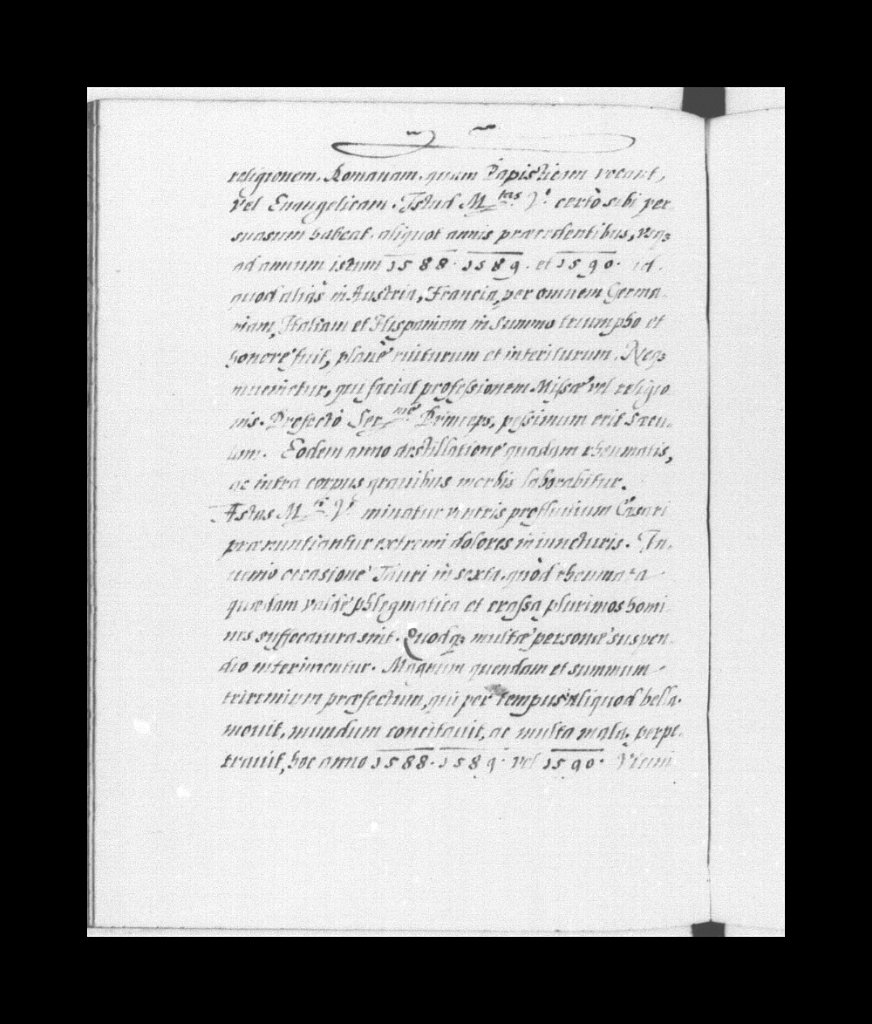 religionem Romanam, quam Papisticam vocant,
vel Euangelicam. Istud M.tas V.a certò sibi per
suasum habeat, aliquot annis præcedentibus, vsq3
ad annum istum 1588. 1589. et 1590. id
quod aliàs in Austria, Francia, per omnem Germa
niam, Italiam et Hispaniam in summo triumpho et
honore fuit, planè ruiturum et interiturum. Neq3
inuenietur, qui faciat professionem Missæ vel religio
nis. Profectò Ser.me Princeps, pessimum erit sæcu
lum. Eodem anno destillatione quadam rheumatis,
ac intra corpus grauibus morbis laborabitur.
Astas M.ti V.æ minatur ventris profluuium Cæsari
prænuntiantur extremi dolores in iuncturis.
occasione Tauri in sexta, quòd rheumata
quædam valde phlegmatica et crassa plurimos homi
nes suffocatura sint. Quodq3 multæ personæ suspen
dio interimentur. Magnum quendam et summum
triremium præfectum, qui per tempus aliquod bella
mouit, mundum concitauit, ac multa mala perpe
trauit, hoc anno 1588. 1589. vel 1590.